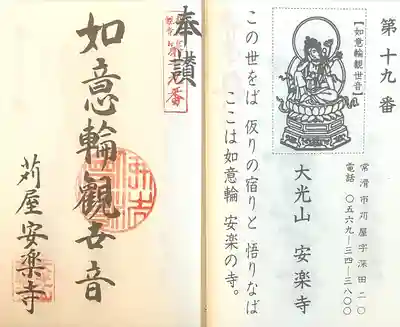 第十九番
【如意輪觀世音】
常滑市苅屋字深田二〇
電話 〇五六九―三四―三八〇〇
大光山 安楽寺
この世をば 仮りの宿りと 悟りなば
ここは如意輪 安楽の寺。
奉讃
如意輪觀世音
苅屋安楽寺